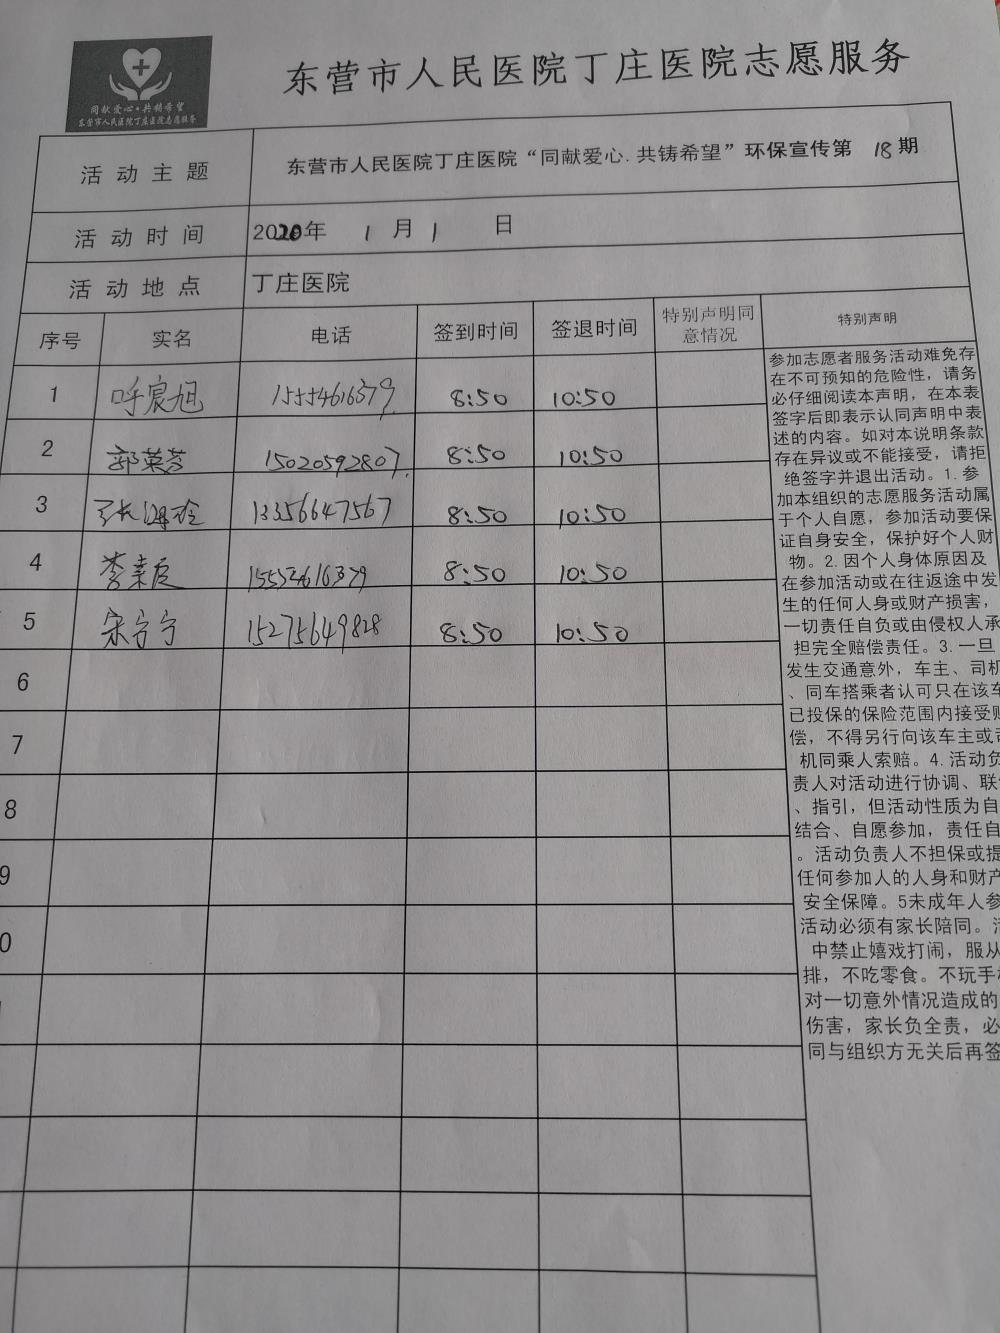 同献爱心·共铸希望
东营市人民医院丁庄医院志愿服务
东营市人民医院丁庄医院志愿服务
活动主题 东营市人民医院丁庄医院“同献爱心.共铸希望”环保宣传第 18 期
活动时间 2020年 1 月 1 日
活动地点 丁庄医院
序号 实名 电话 签到时间 签退时间 特别声明同意情况 特别声明
1 呼宸旭 15554616379 8:50 10:50
2 郭荣芳 15020592807 8:50 10:50
3 张海玲 13356647567 8:50 10:50
4 李 15554616379 8:50 10:50
5 宋宁宁 15275649828 8:50 10:50
6
7
8
9
0
参加志愿者服务活动难免存
在不可预知的危险性，请务
必仔细阅读本声明，在本表
签字后即表示认同声明中表
述的内容。如对本说明条款
存在异议或不能接受，请拒
绝签字并退出活动。1.参
加本组织的志愿服务活动属
于个人自愿，参加活动要保
证自身安全，保护好个人财
物。2.因个人身体原因及
在参加活动或在往返途中发
生的任何人身或财产损害，
一切责任自负或由侵权人承
担完全赔偿责任。3.一旦
发生交通意外，车主、司机
、同车搭乘者认可只在该车
已投保的保险范围内接受赔
偿，不得另行向该车主或司
机同乘人索赔。4.活动负
责人对活动进行协调、联
、指引，但活动性质为自
结合、自愿参加，责任自
。活动负责人不担保或提
任何参加人的人身和财产
安全保障。5未成年人参
活动必须有家长陪同。活
中禁止嬉戏打闹，服从
排，不吃零食。不玩手
对一切意外情况造成的
伤害，家长负全责，必
同与组织方无关后再签